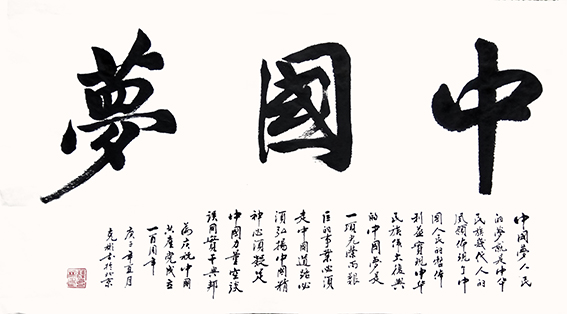 中國夢
中國夢人民
的夢就是中华
民族幾代人的
夙願体現了中
國人民的整体
利益實現中华
民族伟大復興
的中國夢是
一項光榮而艱
巨的事業必須
走中國道路必
須弘揚中國精
神必須凝
中國力量空談
誤國實干興邦
為庆祝中國
共產党成立
一百周年
庚子年五月
書於北京